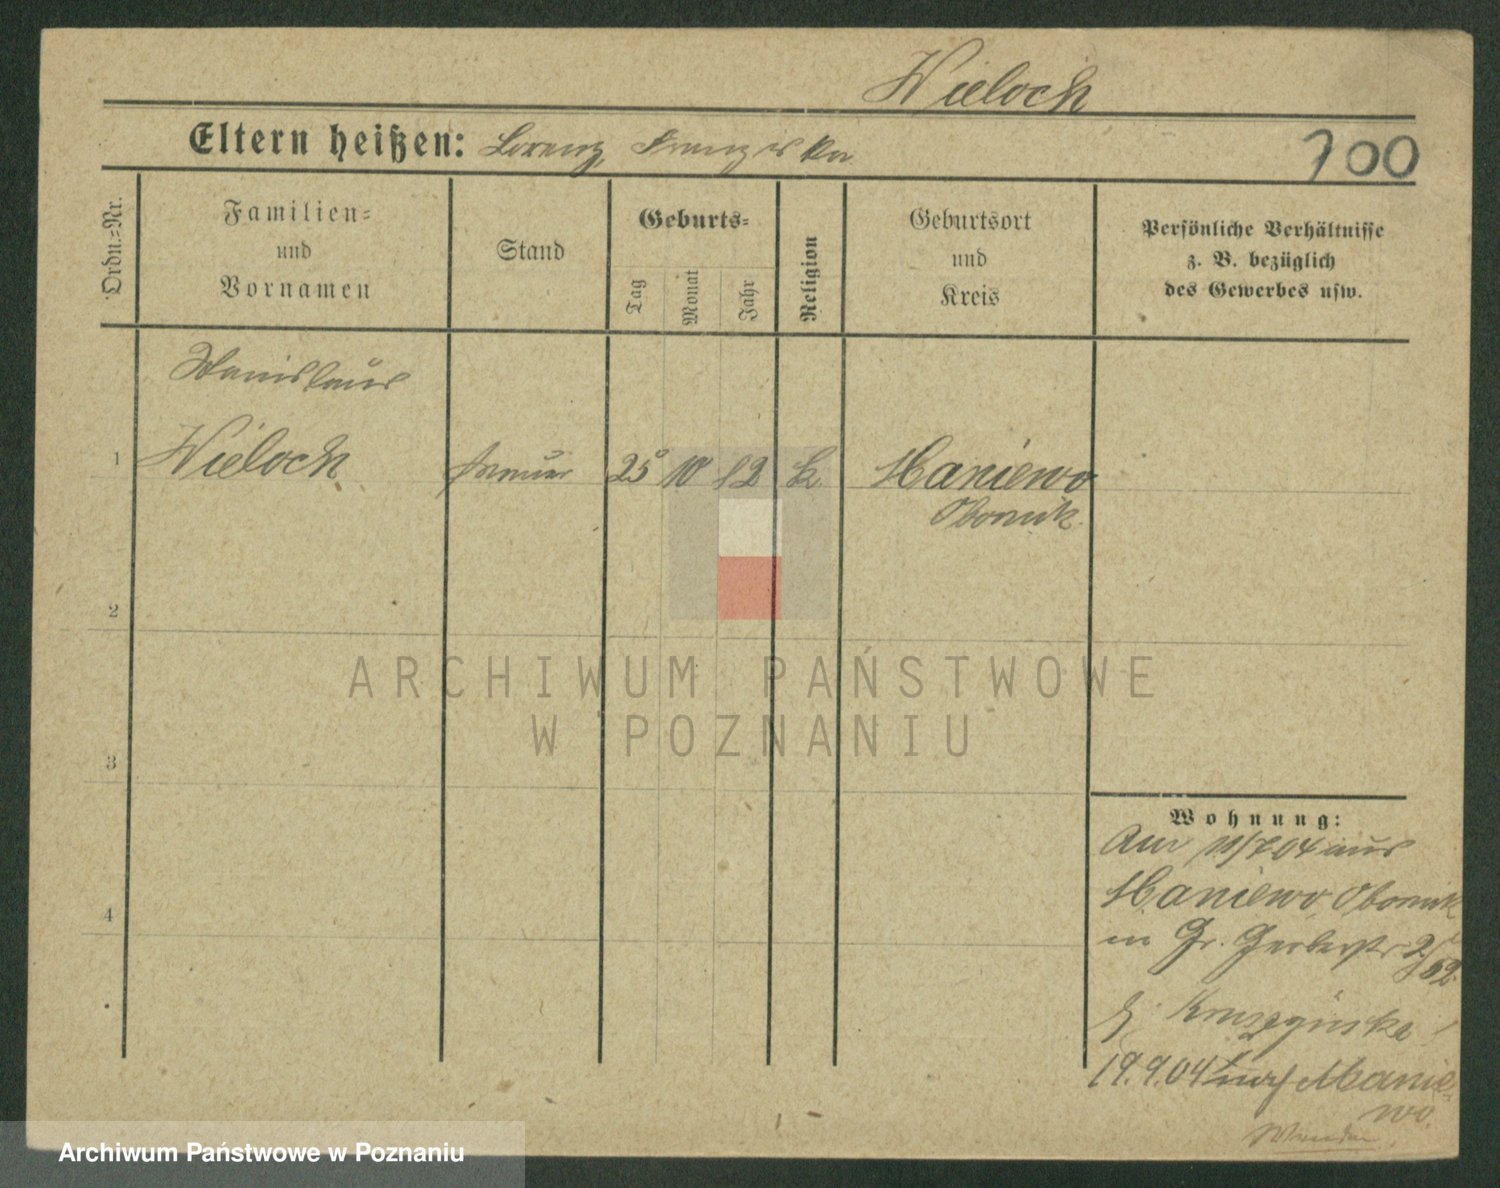 Wieloch
Eltern heißen: Lorenz, Franziska
700
Ordn.=Nr.
Familien=
und
Vornamen
Stand
Geburts=
Tag
Monat
Jahr
Religion
Geburtsort
und
Kreis
Persönliche Verhältnisse
z. B. bezüglich
des Gewerbes usw.
Stanislaus
1 Wieloch 25 10 82 k. Maniewo
Obornik.
2
3
4
ARCHIWUM PAŃSTWOWE
W POZNANIU
Wohnung:
Am 11/7 04 aus
Maniewo Obornik
in Gr. Gerberstr 2/
52
19.9.04 nach Manie-
wo.
Archiwum Państwowe w Poznaniu